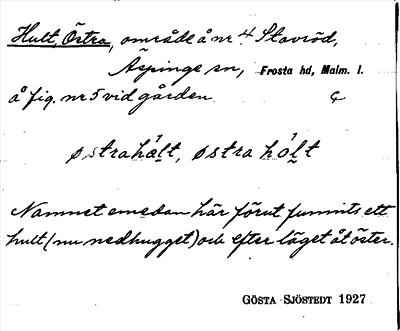 Hult, Östra, område å nr 4 Stavröd,
Äspinge sn, Frosta hd, Malm. l.
å fig. nr 5 vid gården.
østrahæ̀lt, østra hól̥t
Namnet emedan här förut funnits ett
hult (nu nedhugget) och efter läget åt öster.
GÖSTA SJÖSTEDT 1927